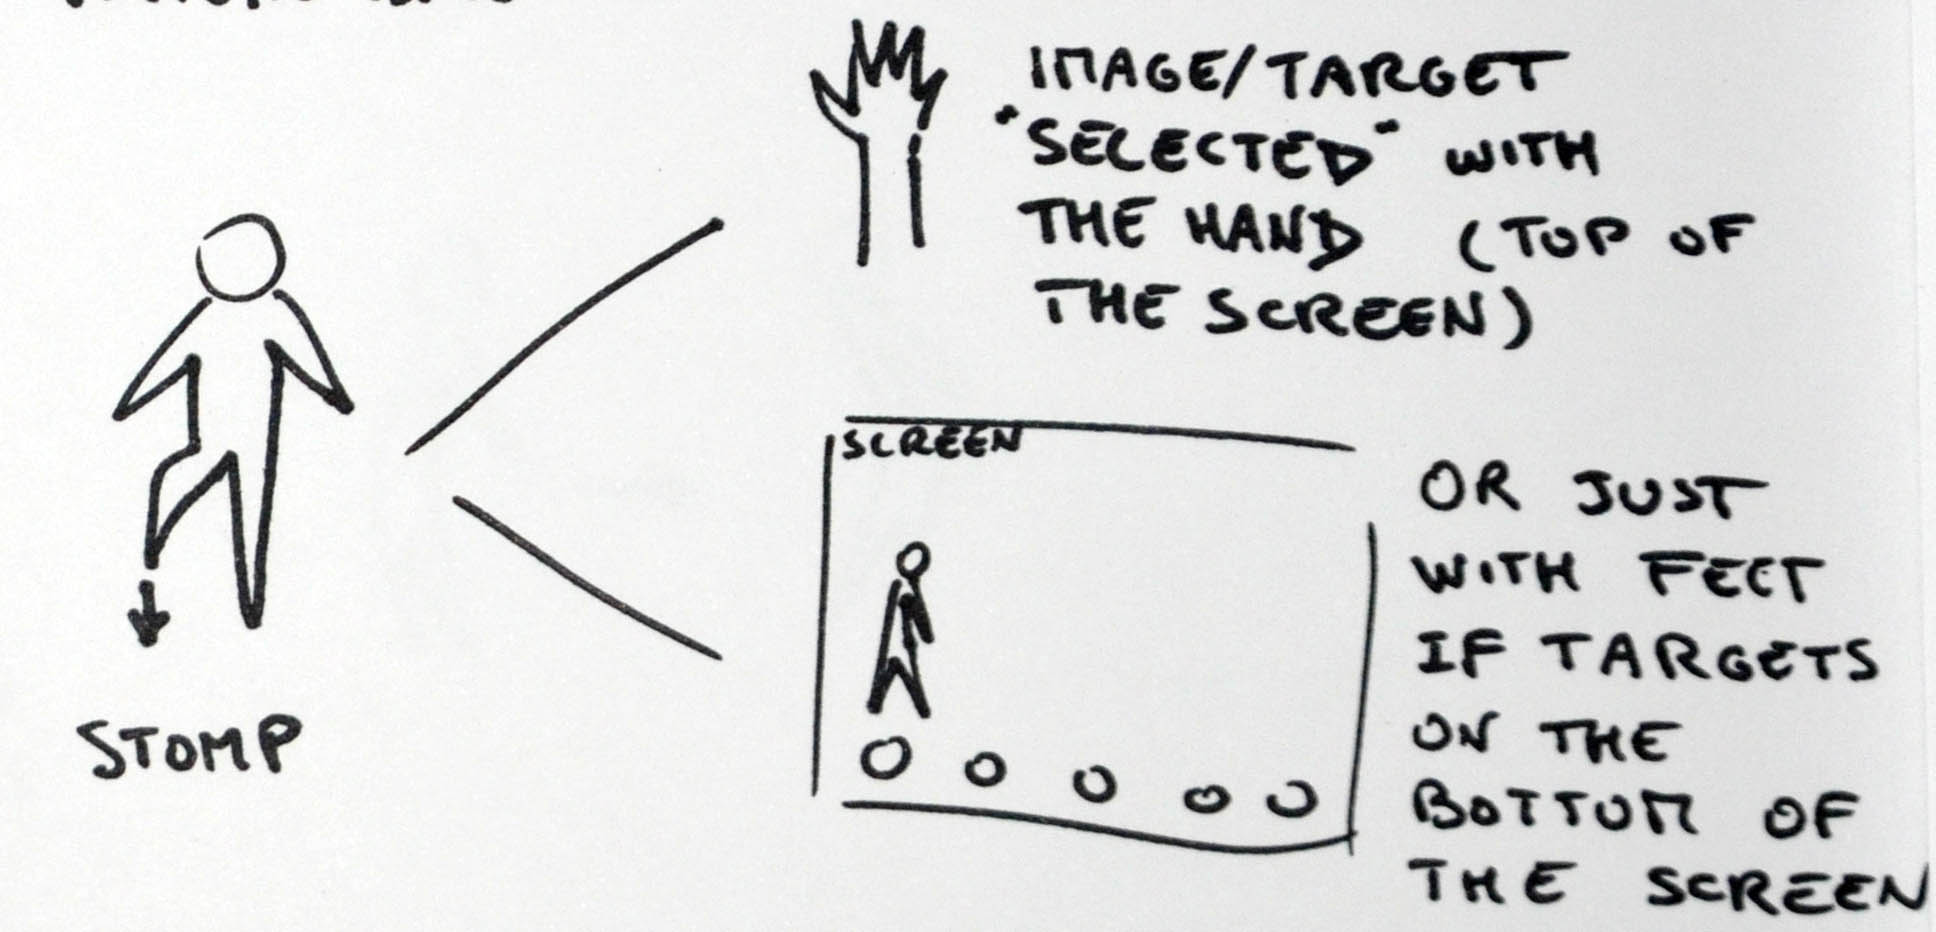 IMAGE/TARGET
"SELECTED" WITH
THE HAND (TOP OF
THE SCREEN)
SCREEN
OR JUST
WITH FEET
IF TARGETS
ON THE
BOTTOM OF
THE SCREEN
STOMP